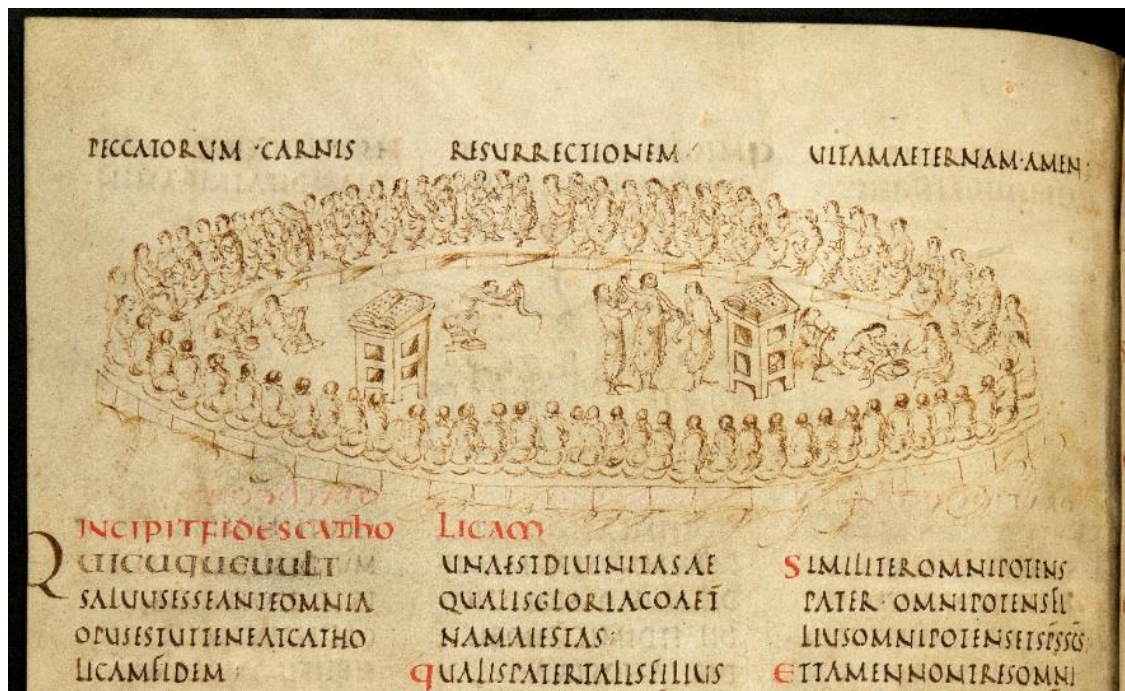 PECCATORUM·CARNIS RESURRECTIONEM· UITAMAETERNAM·AMEN·
INCIPITFIDESCATHO LICAM
QUICUQUEUULT
SALUUSESSEANTEOMNIA
OPUSESTUTTENEATCATHO
LICAMFIDEM·
UNAESTDIUINITASAE
QUALISGLORIACOAET̄
NAMAIESTAS·
QUALISPATERTALISFILIUS
SIMILITEROMNIPOTENS
PATER·OMNIPOTENSFI
LIUSOMNIPOTENSETSP̄SSC̄S
ETTAMENNONTRESOMNI